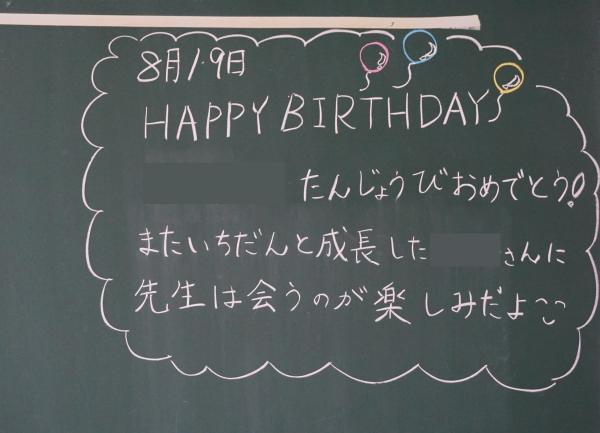 8月19日
HAPPY BIRTHDAY
たんじょうびおめでとう!
またいちだんと成長した さんに
先生は会うのが楽しみだよ